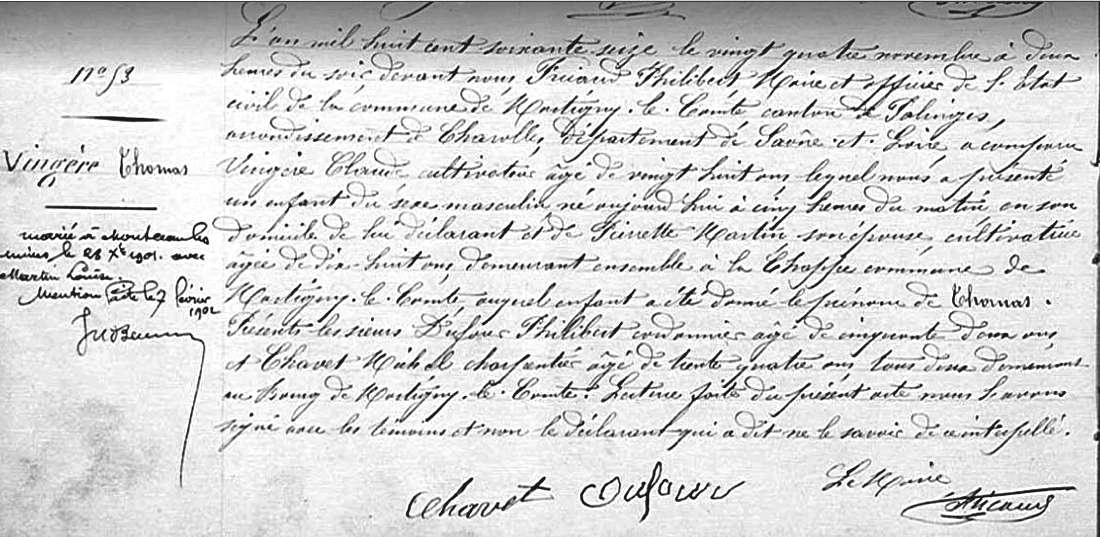 N° 53
Vingère Thomas
marié à Montceau les
mines le 28 Xbre 1901. avec
Martin Louise.
Mention faite le 7 février
1902
L'an mil huit cent soixante-seize le vingt quatre novembre à deux
heures du soir devant nous Philibert, Maire et officier de l'Etat
civil de la commune de Martigny-le-Comte canton de Palinges,
arrondissement de Charolles, département de Saône-et-Loire a comparu
Vingère Claude cultivateur âgé de vingt huit ans lequel nous a présenté
un enfant du sexe masculin né aujourd'hui à cinq heures du matin en son
domicile de lui déclarant et de Pierrette Martin son épouse, cultivatrice
âgée de dix-huit ans demeurant ensemble à la Chappe commune de
Martigny-le-Comte auquel enfant a été donné le prénom de Thomas.
Présents les sieurs Dufour Philibert cordonnier âgé de cinquante deux ans
et Chavet Michel charpentier âgé de trente quatre ans tous deux demeurant
au Bourg de Martigny-le-Comte. Lecture faite du présent acte nous l'avons
signé avec les témoins et non le déclarant qui a dit ne le savoir de ce interpellé.
Le Maire
Chavet Dufour